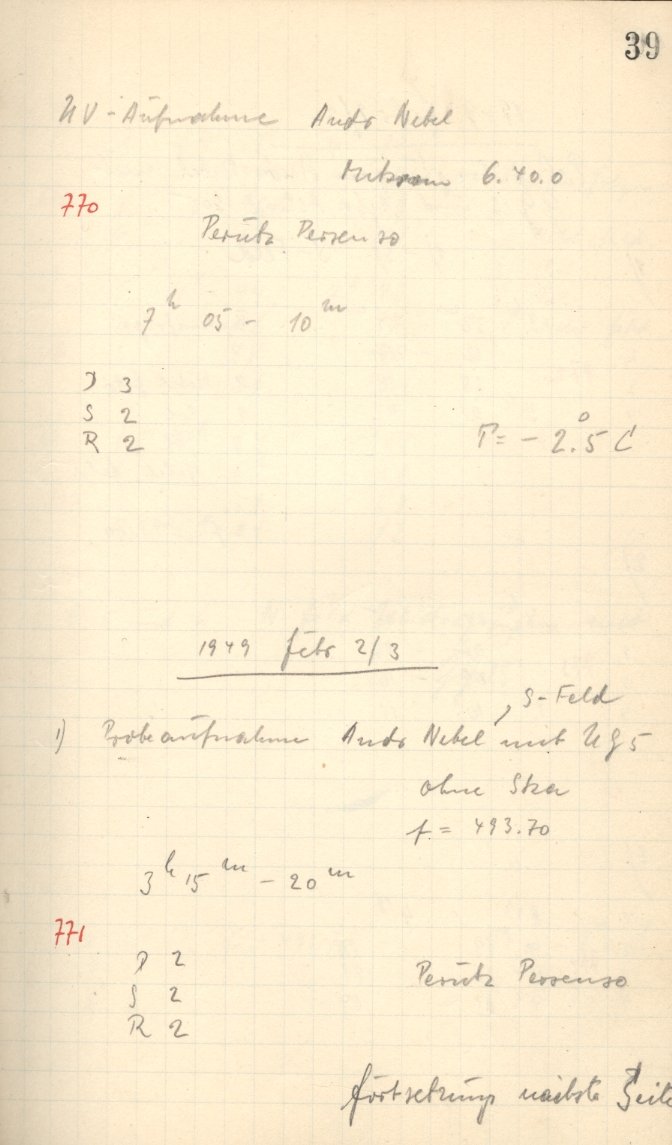 39
UV-Aufnahme Andr Nebel
6.40.0
770
Perutz Persenso
7h 05 - 10m
D 3
S 2
R 2
T = - 2.°5 C
1949 Febr 2/3
, S-Feld
1) Probeaufnahme Andr Nebel mit UG5
ohne
f = 493.70
3h 15m - 20m
771
D 2
S 2
R 2
Perutz Persenso
Fortsetzung nächste Seite